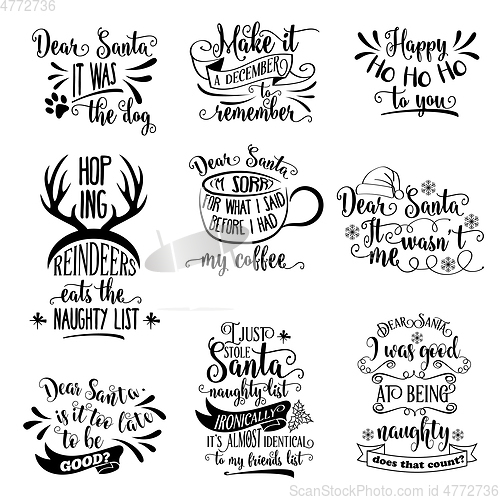 4772736
Dear Santa
IT WAS
the dog
Make it
A DECEMBER
to
remember
Happy
HO HO HO
to you
HOP
ING
REINDEERS
eats the
NAUGHTY LIST
Dear Santa
I'M SORRY
FOR WHAT I SAID
BEFORE I HAD
my coffee
Dear Santa
It wasn't
me
Dear Santa
is it too late
to be
GOOD?
I JUST
STOLE
Santa
naughty list
IRONICALLY
IT'S ALMOST IDENTICAL
to my friends list
DEAR SANTA
I was good
AT BEING
naughty
does that count?
© StockFresh
Stockfresh.com
ID 4772736